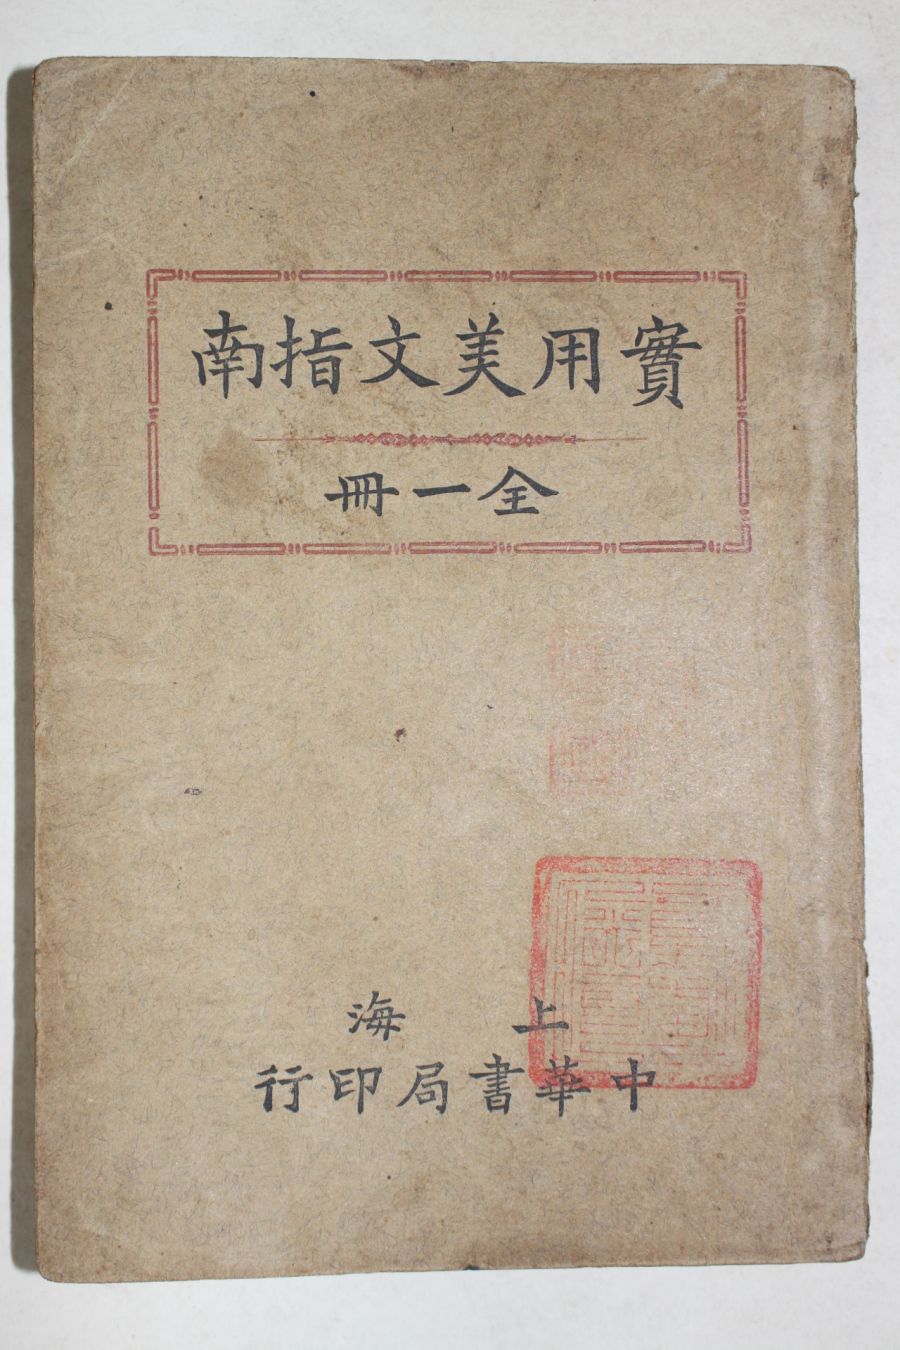 實用美文指南
全一冊
上海
中華書局印行